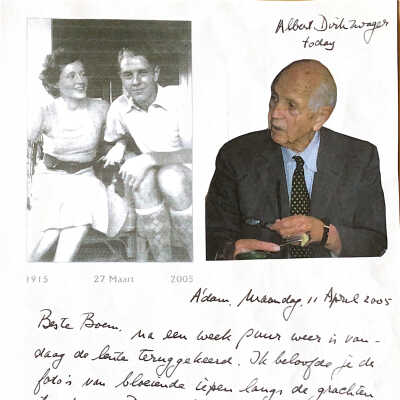 Albert Dirk Zwager
today
1915 27 Maart 2005
A'dam, Maandag, 11 April 2005
Beste Boem, na een week puur weer is van-
daag de lente teruggekeerd. Ik beloofde je de
foto's van bloeiende iepen langs de grachten